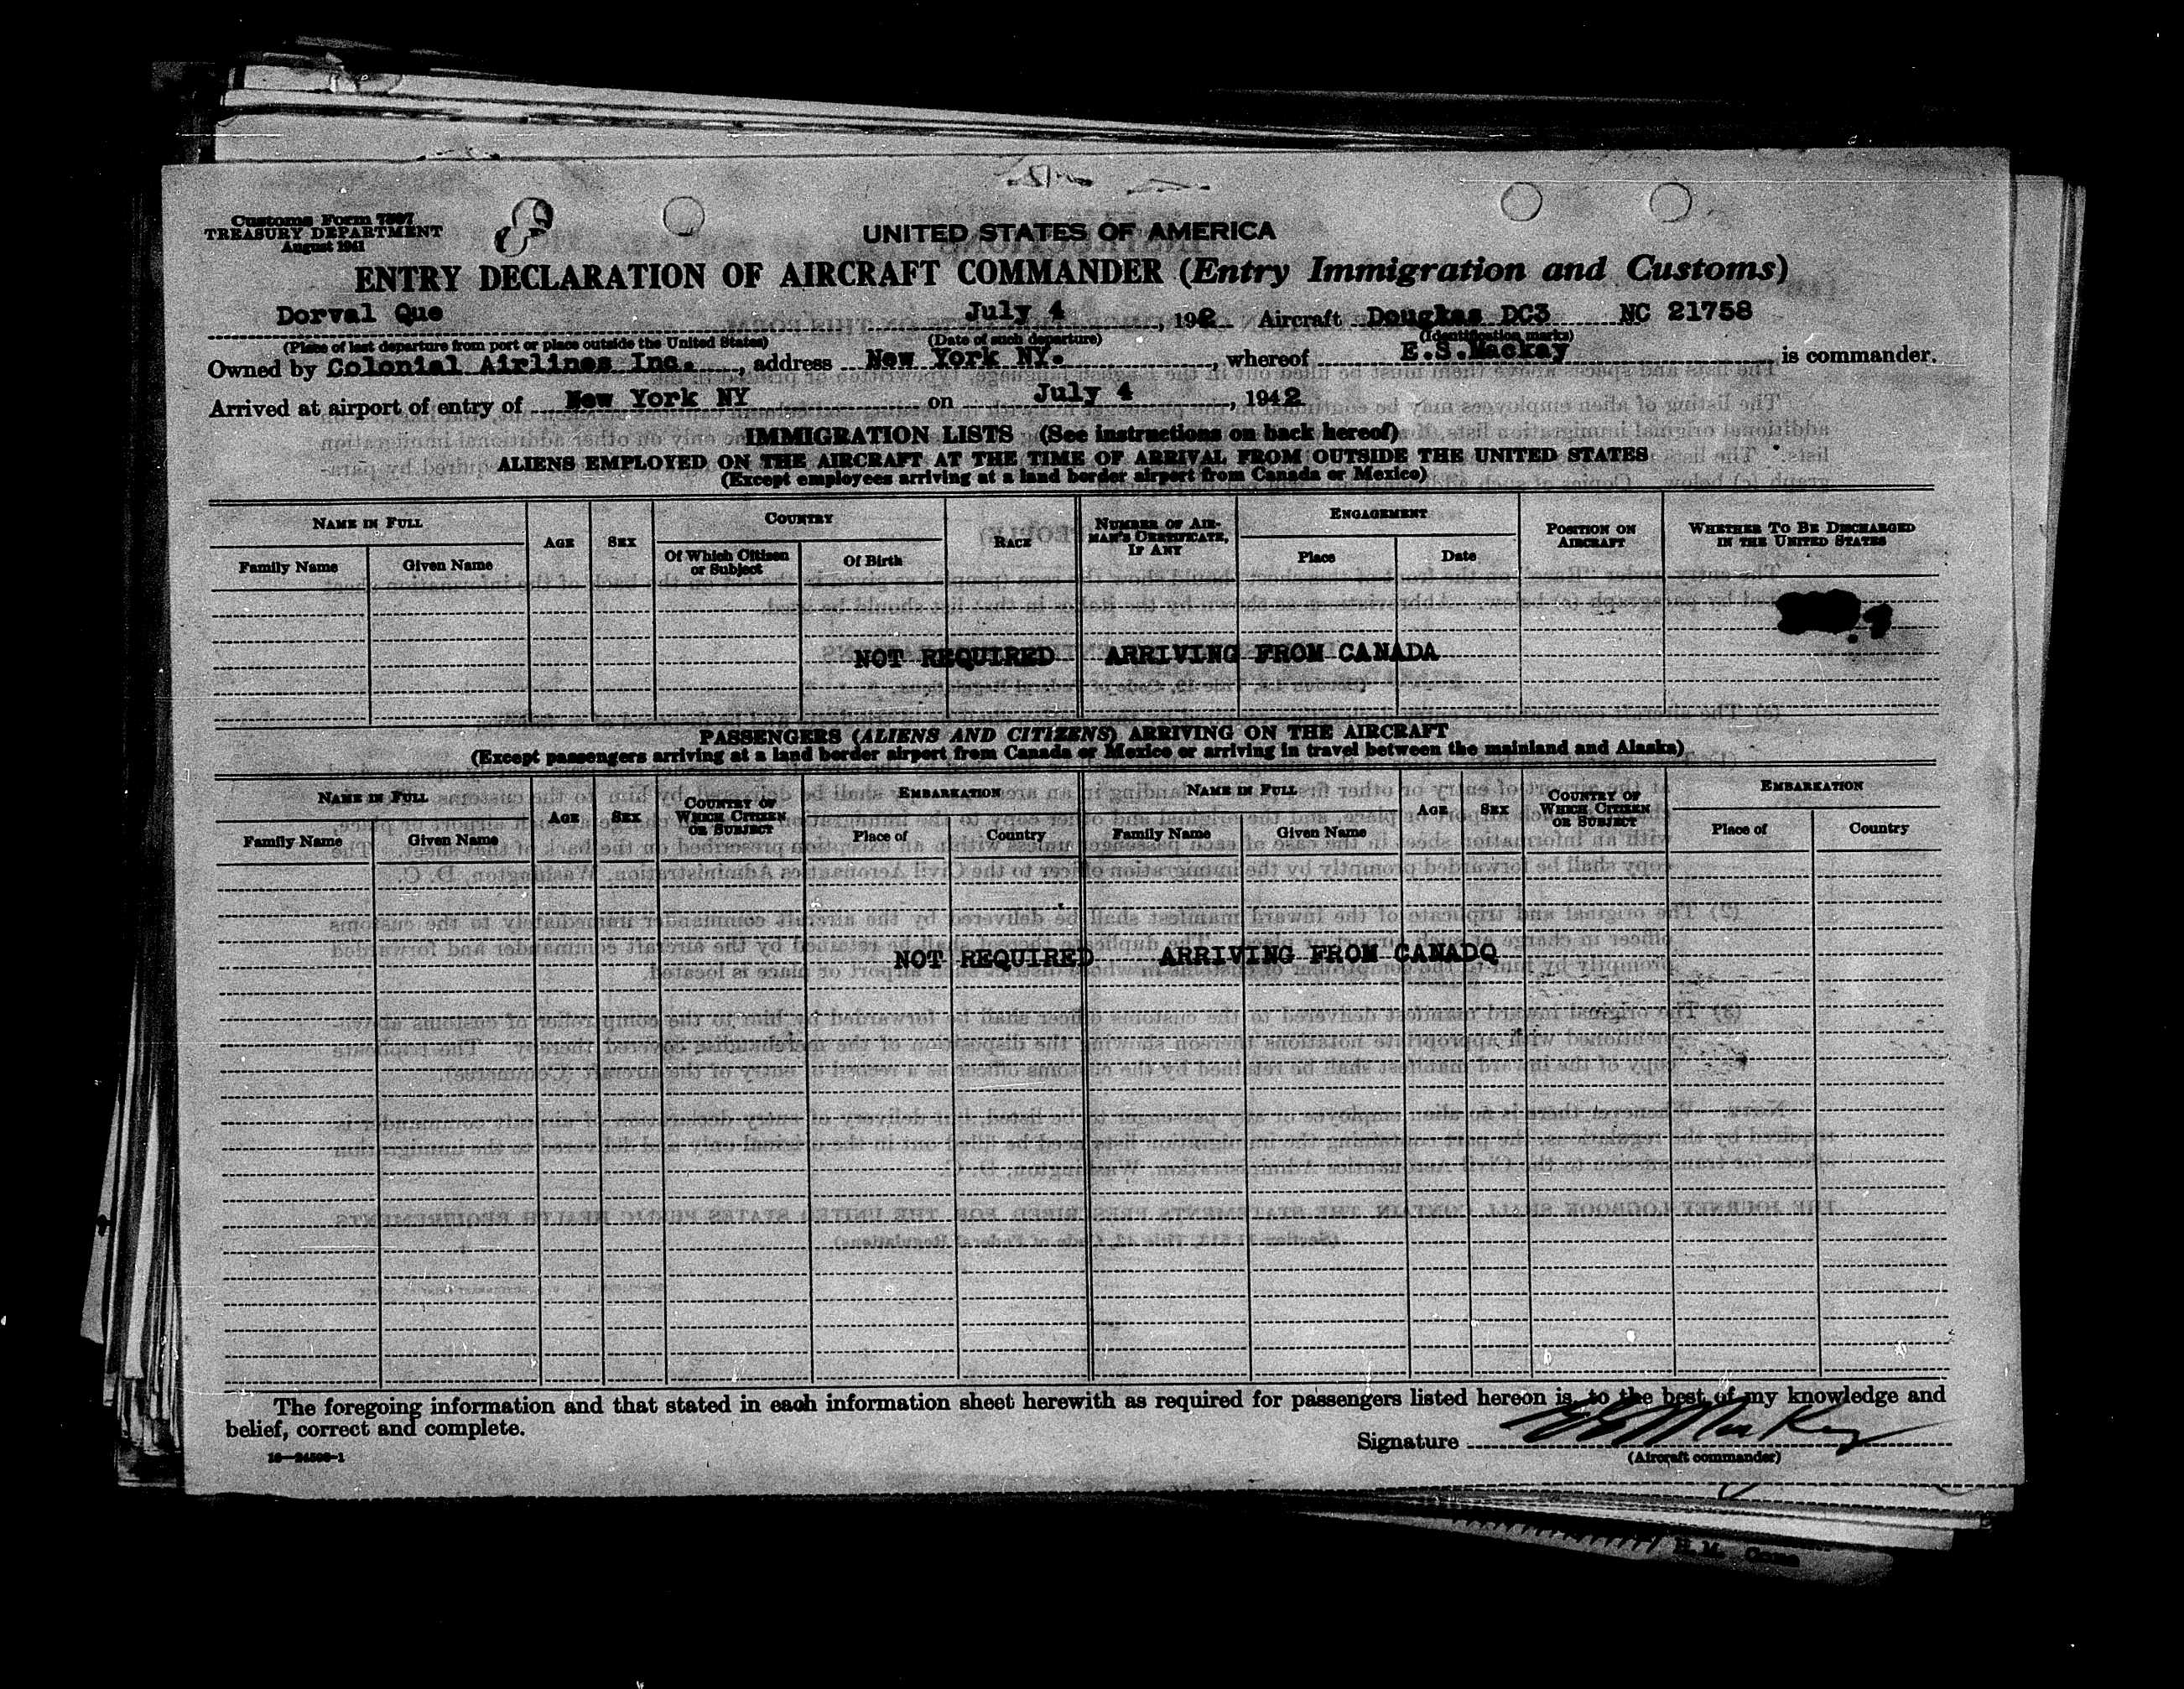 Customs Form 7507
TREASURY DEPARTMENT
August 1941
8
UNITED STATES OF AMERICA
ENTRY DECLARATION OF AIRCRAFT COMMANDER (Entry Immigration and Customs)
Dorval Que July 4, 1942 Aircraft Dougkas DC3 NC 21758
(Place of last departure from port or place outside the United States) (Date of such departure) (Identification marks)
Owned by Colonial Airlines Inc., address New York NY., whereof E.S.Mackay is commander.
Arrived at airport of entry of New York NY on July 4, 1942
IMMIGRATION LISTS (See instructions on back hereof)
ALIENS EMPLOYED ON THE AIRCRAFT AT THE TIME OF ARRIVAL FROM OUTSIDE THE UNITED STATES
(Except employees arriving at a land border airport from Canada or Mexico)
NAME IN FULL AGE SEX COUNTRY RACE NUMBER OF AIRMAN'S CERTIFICATE, IF ANY ENGAGEMENT POSITION ON AIRCRAFT WHETHER TO BE DISCHARGED IN THE UNITED STATES
Family Name Given Name Of Which Citizen or Subject Of Birth Place Date
NOT REQUIRED ARRIVING FROM CANADA
PASSENGERS (ALIENS AND CITIZENS) ARRIVING ON THE AIRCRAFT
(Except passengers arriving at a land border airport from Canada or Mexico or arriving in travel between the mainland and Alaska)
NAME IN FULL AGE SEX COUNTRY OF WHICH CITIZEN OR SUBJECT EMBARKATION NAME IN FULL AGE SEX COUNTRY OF WHICH CITIZEN OR SUBJECT EMBARKATION
Family Name Given Name Place of Country Family Name Given Name Place of Country
NOT REQUIRED ARRIVING FROM CANADQ
The foregoing information and that stated in each information sheet herewith as required for passengers listed hereon is, to the best of my knowledge and
belief, correct and complete.
Signature E S MacKay
(Aircraft commander)
16—24506-1